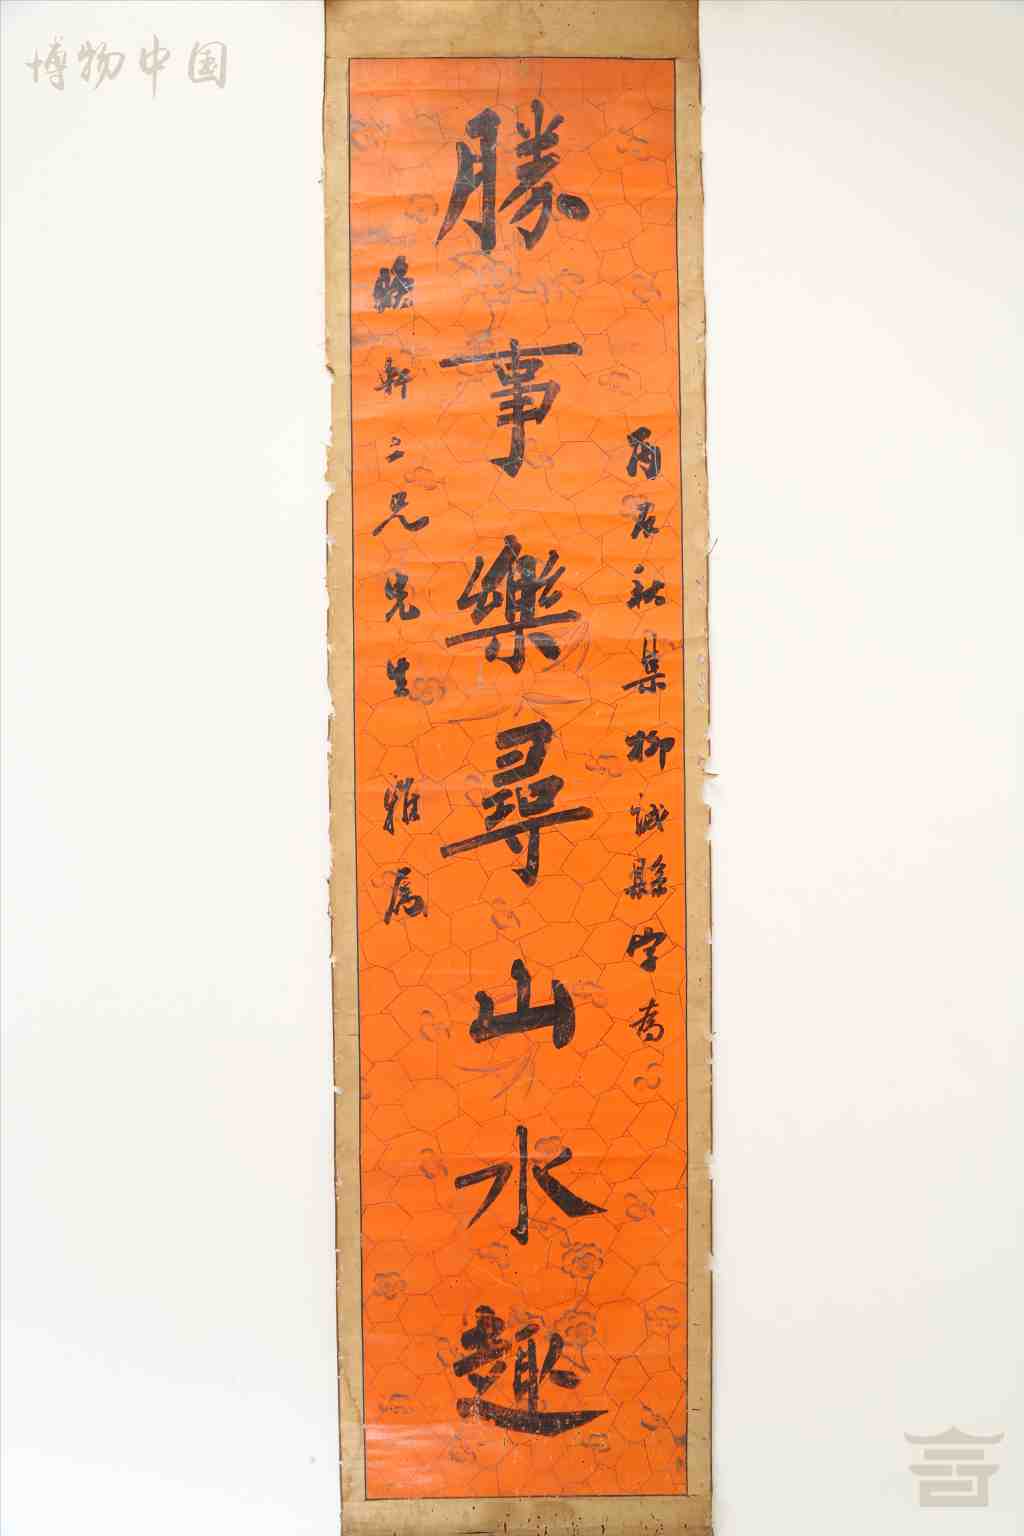 博物中国
丙辰秋集柳誠縣字為
勝事樂尋山水趣
軒二兄先生 雅属